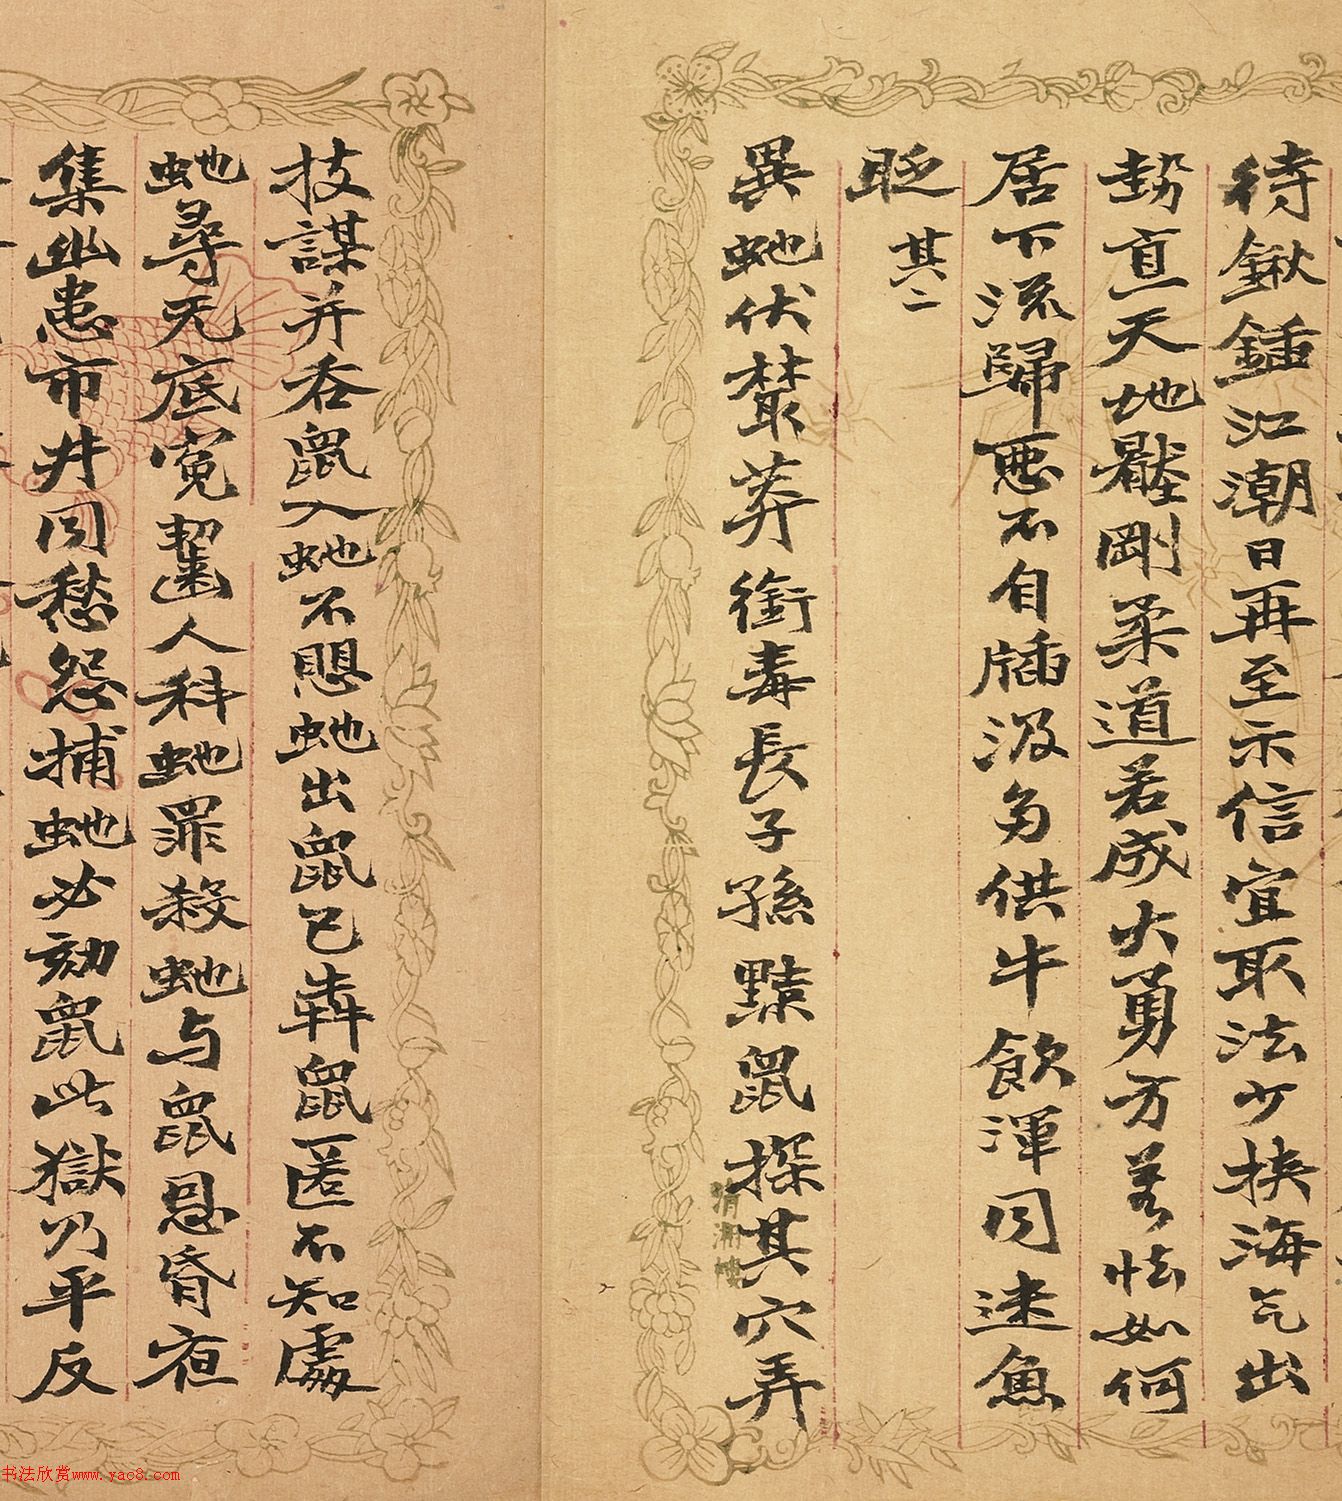 待鍬鍤江潮日再至示信宜取法少挾海气出
勢直天地壓剛柔道若成大勇方若怯如何
居下流歸惡不自牐汲多供牛飲渾同迷魚
眨其二
異虵伏榛莽銜毒長子孫黠鼠探其穴弄
技謀并吞鼠入虵不思虵出鼠已犇鼠匿不知處
虵尋无底寃齧人科虵罪殺虵与鼠恩昏夜
集幽患市井同愁怨捕虵必劾鼠此獄乃平反
书法欣赏www.yac8.com